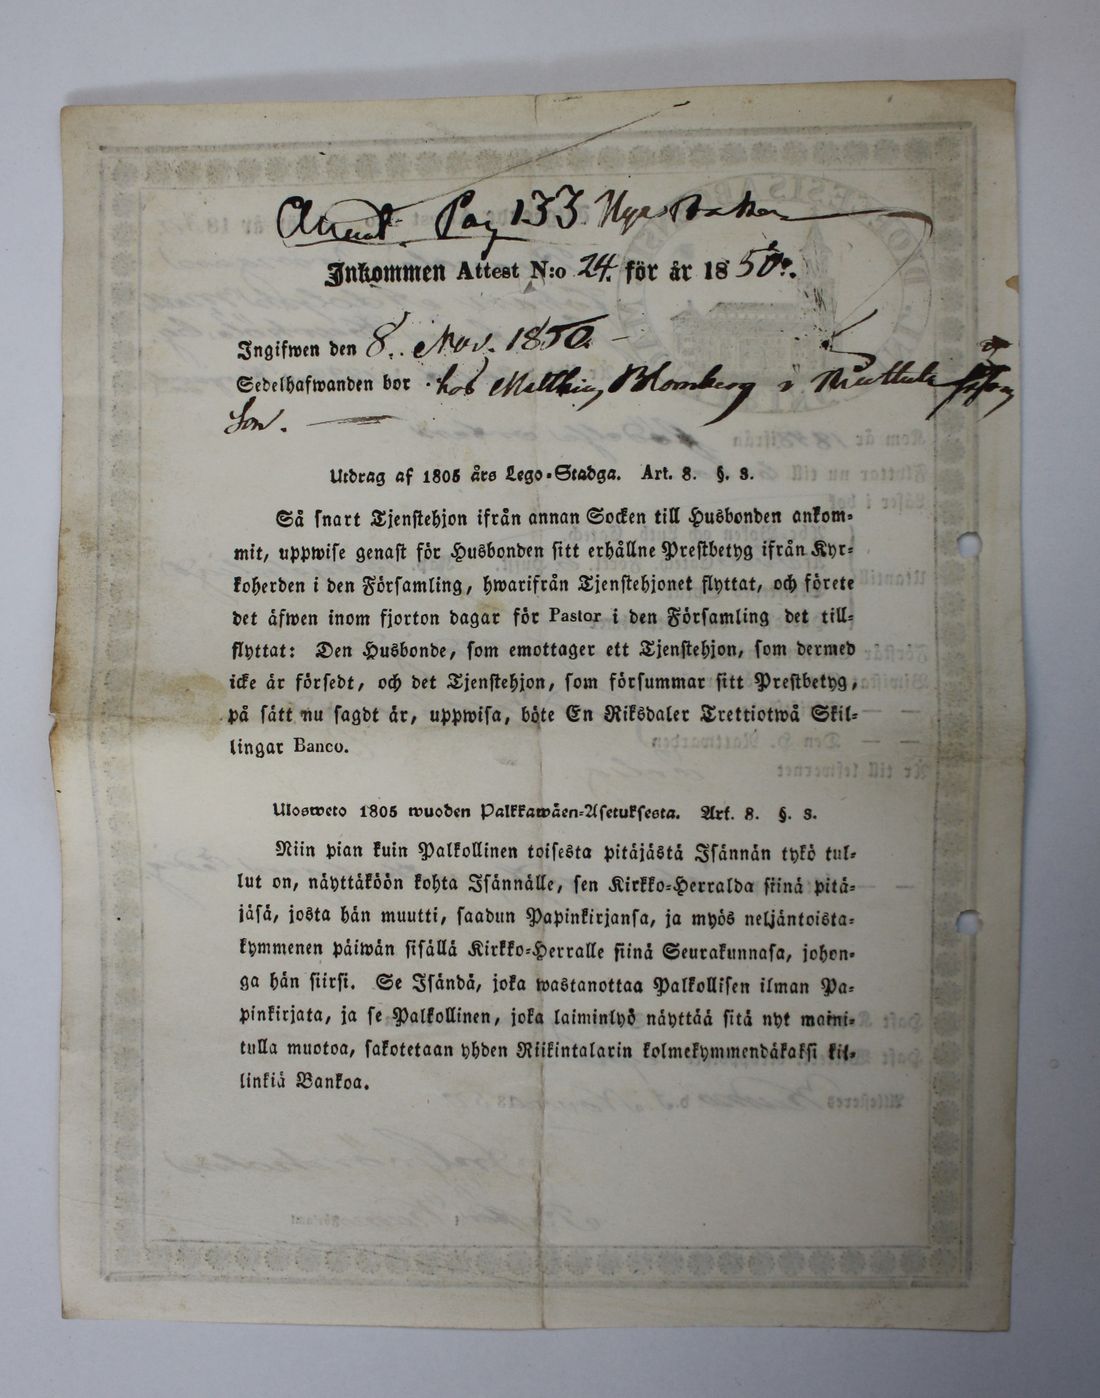 Pag 133 Nya
Inkommen Attest N:o 24. för år 1850.
Ingifwen den 8. Nov. 1850.
Sedelhafwanden bor hos Matthias Blomberg i
son.
Utdrag af 1805 års Lego-Stadga. Art. 8. §. 3.
Så snart Tjenstehjon ifrån annan Socken till Husbonden ankom-
mit, uppwise genast för Husbonden sitt erhållne Prestbetyg ifrån Kyr-
koherden i den Församling, hwarifrån Tjenstehjonet flyttat, och förete
det äfwen inom fjorton dagar för Pastor i den Församling det till-
flyttat: Den Husbonde, som emottager ett Tjenstehjon, som dermed
icke är försedt, och det Tjenstehjon, som försummar sitt Prestbetyg,
på sätt nu sagdt är, uppwisa, böte En Riksdaler Trettiotwå Skil-
lingar Banco.
Ulosweto 1805 wuoden Palkkawäen-Asetuksesta. Art. 8. §. 3.
Niin pian kuin Palkollinen toisesta pitäjästä Isännän tykö tul-
lut on, näyttäköön kohta Isännälle, sen Kirkko-Herralda siinä pitä-
jäsä, josta hän muutti, saadun Papinkirjansa, ja myös neljäntoista-
kymmenen päiwän sisällä Kirkko-Herralle siinä Seurakunnasa, johon-
ga hän siirsi. Se Isändä, joka wastanottaa Palkollisen ilman Pa-
pinkirjata, ja se Palkollinen, joka laiminlyö näyttää sitä nyt maini-
tulla muotoa, sakotetaan yhden Riikintalarin kolmekymmendäkaksi kil-
linkiä Bankoa.